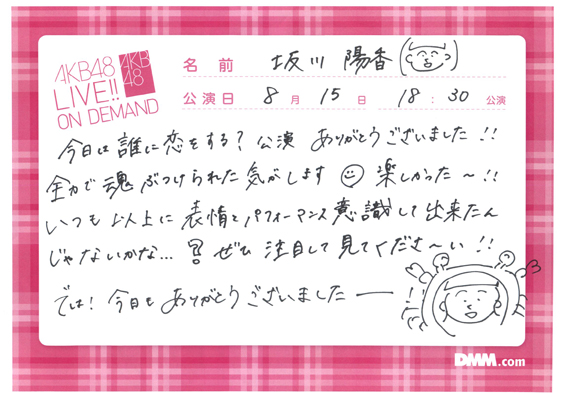 AKB48
LIVE!!
ON DEMAND
AKB
48
名 前 坂川 陽香
公演日 8 月 15 日 18 : 30 公演
今日は誰に恋をする？公演 ありがとうございました!!
全力で魂ぶつけられた気がします 楽しかった〜!!
いつも以上に表情とパフォーマンス意識して出来たん
じゃないかな…!? ぜひ注目して見てくださ〜い!!
では! 今日もありがとうございましたー!!
DMM.com